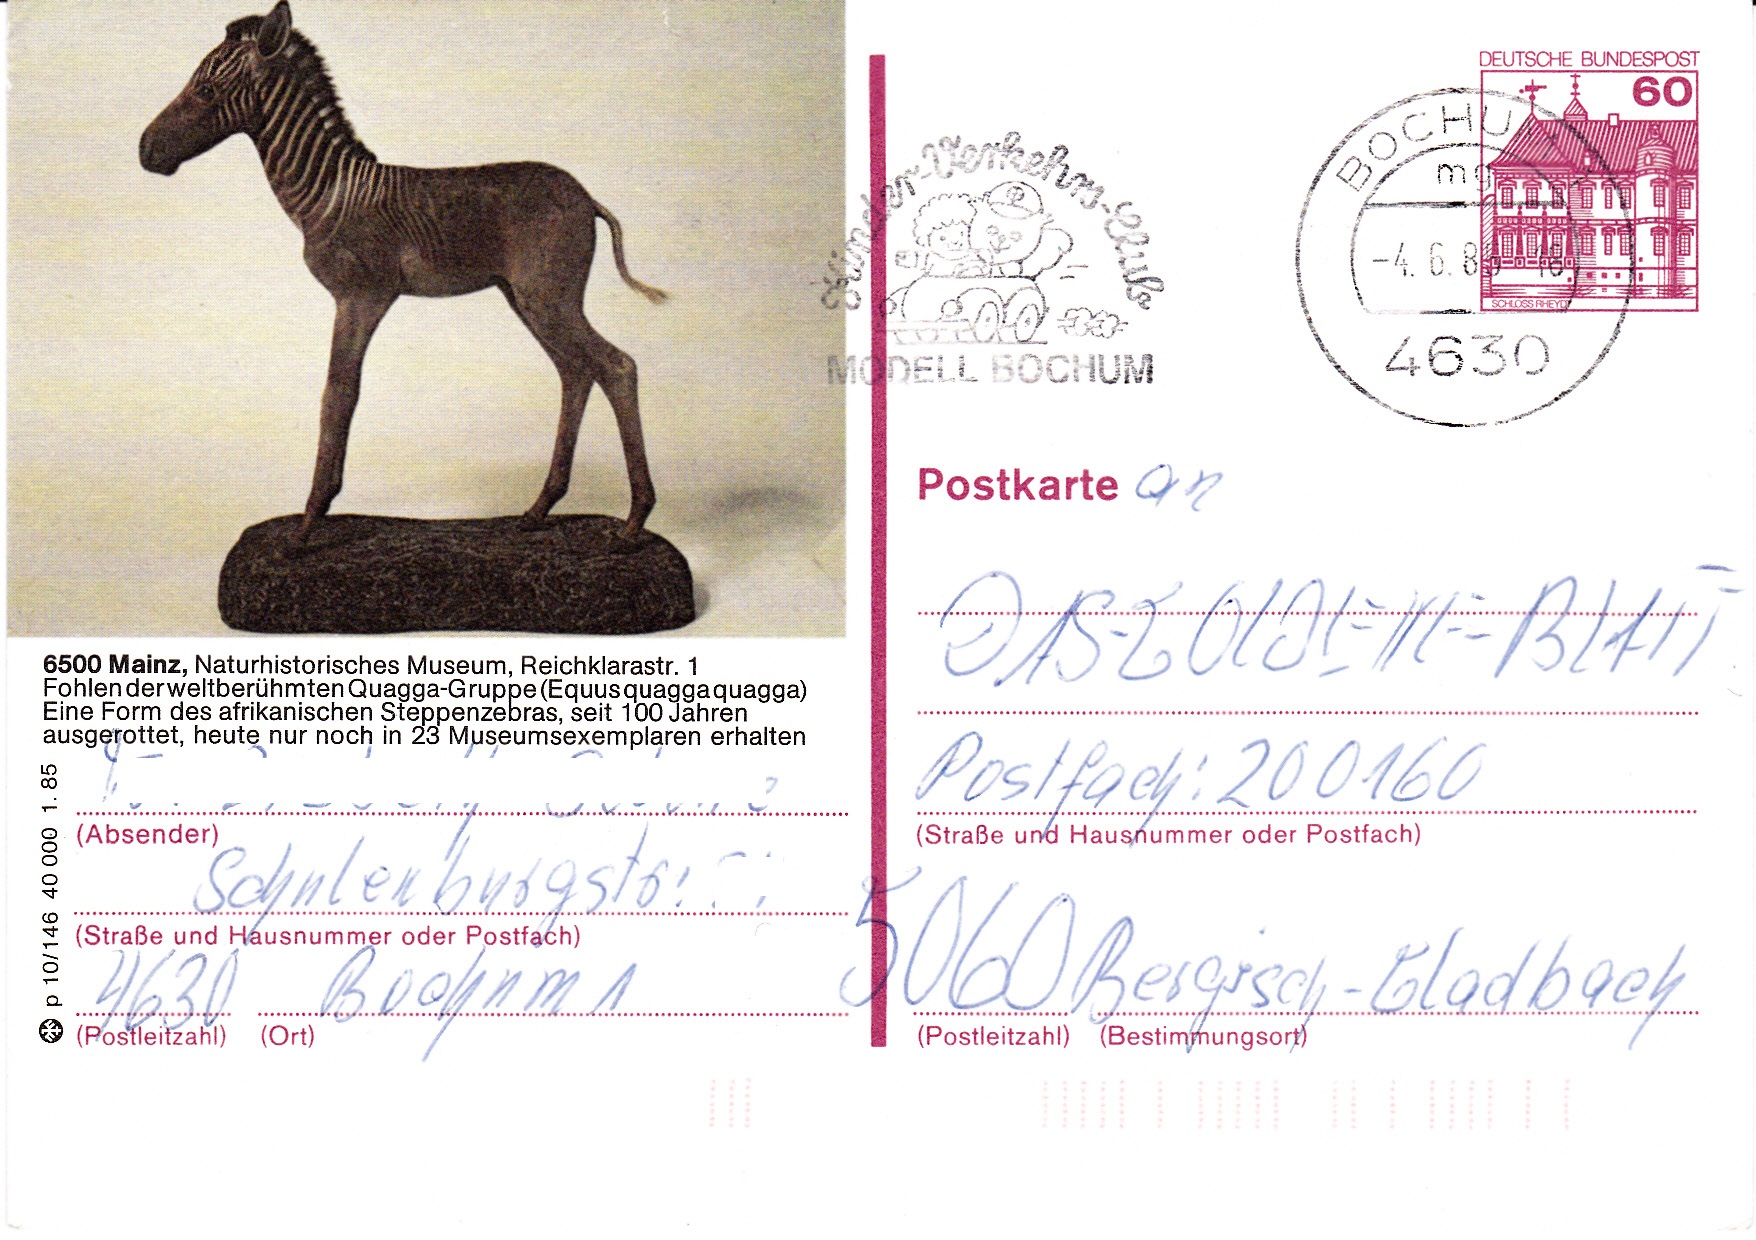 DEUTSCHE BUNDESPOST
60
SCHLOSS RHEYDT
BOCHUM
mg
-4. 6. 8
4630
Kinder-Verkehrs-Club
MODELL BOCHUM
Postkarte an
DAS-GOLDENE-BLATT
Postfach: 200160
(Straße und Hausnummer oder Postfach)
5060 Bergisch-Gladbach
(Postleitzahl) (Bestimmungsort)
6500 Mainz, Naturhistorisches Museum, Reichklarastr. 1
Fohlen der weltberühmten Quagga-Gruppe (Equus quagga quagga)
Eine Form des afrikanischen Steppenzebras, seit 100 Jahren
ausgerottet, heute nur noch in 23 Museumsexemplaren erhalten
(Absender)
Schulenburgstr.
(Straße und Hausnummer oder Postfach)
4630 Bochum 1
(Postleitzahl) (Ort)
p 10/146 40 000 1. 85